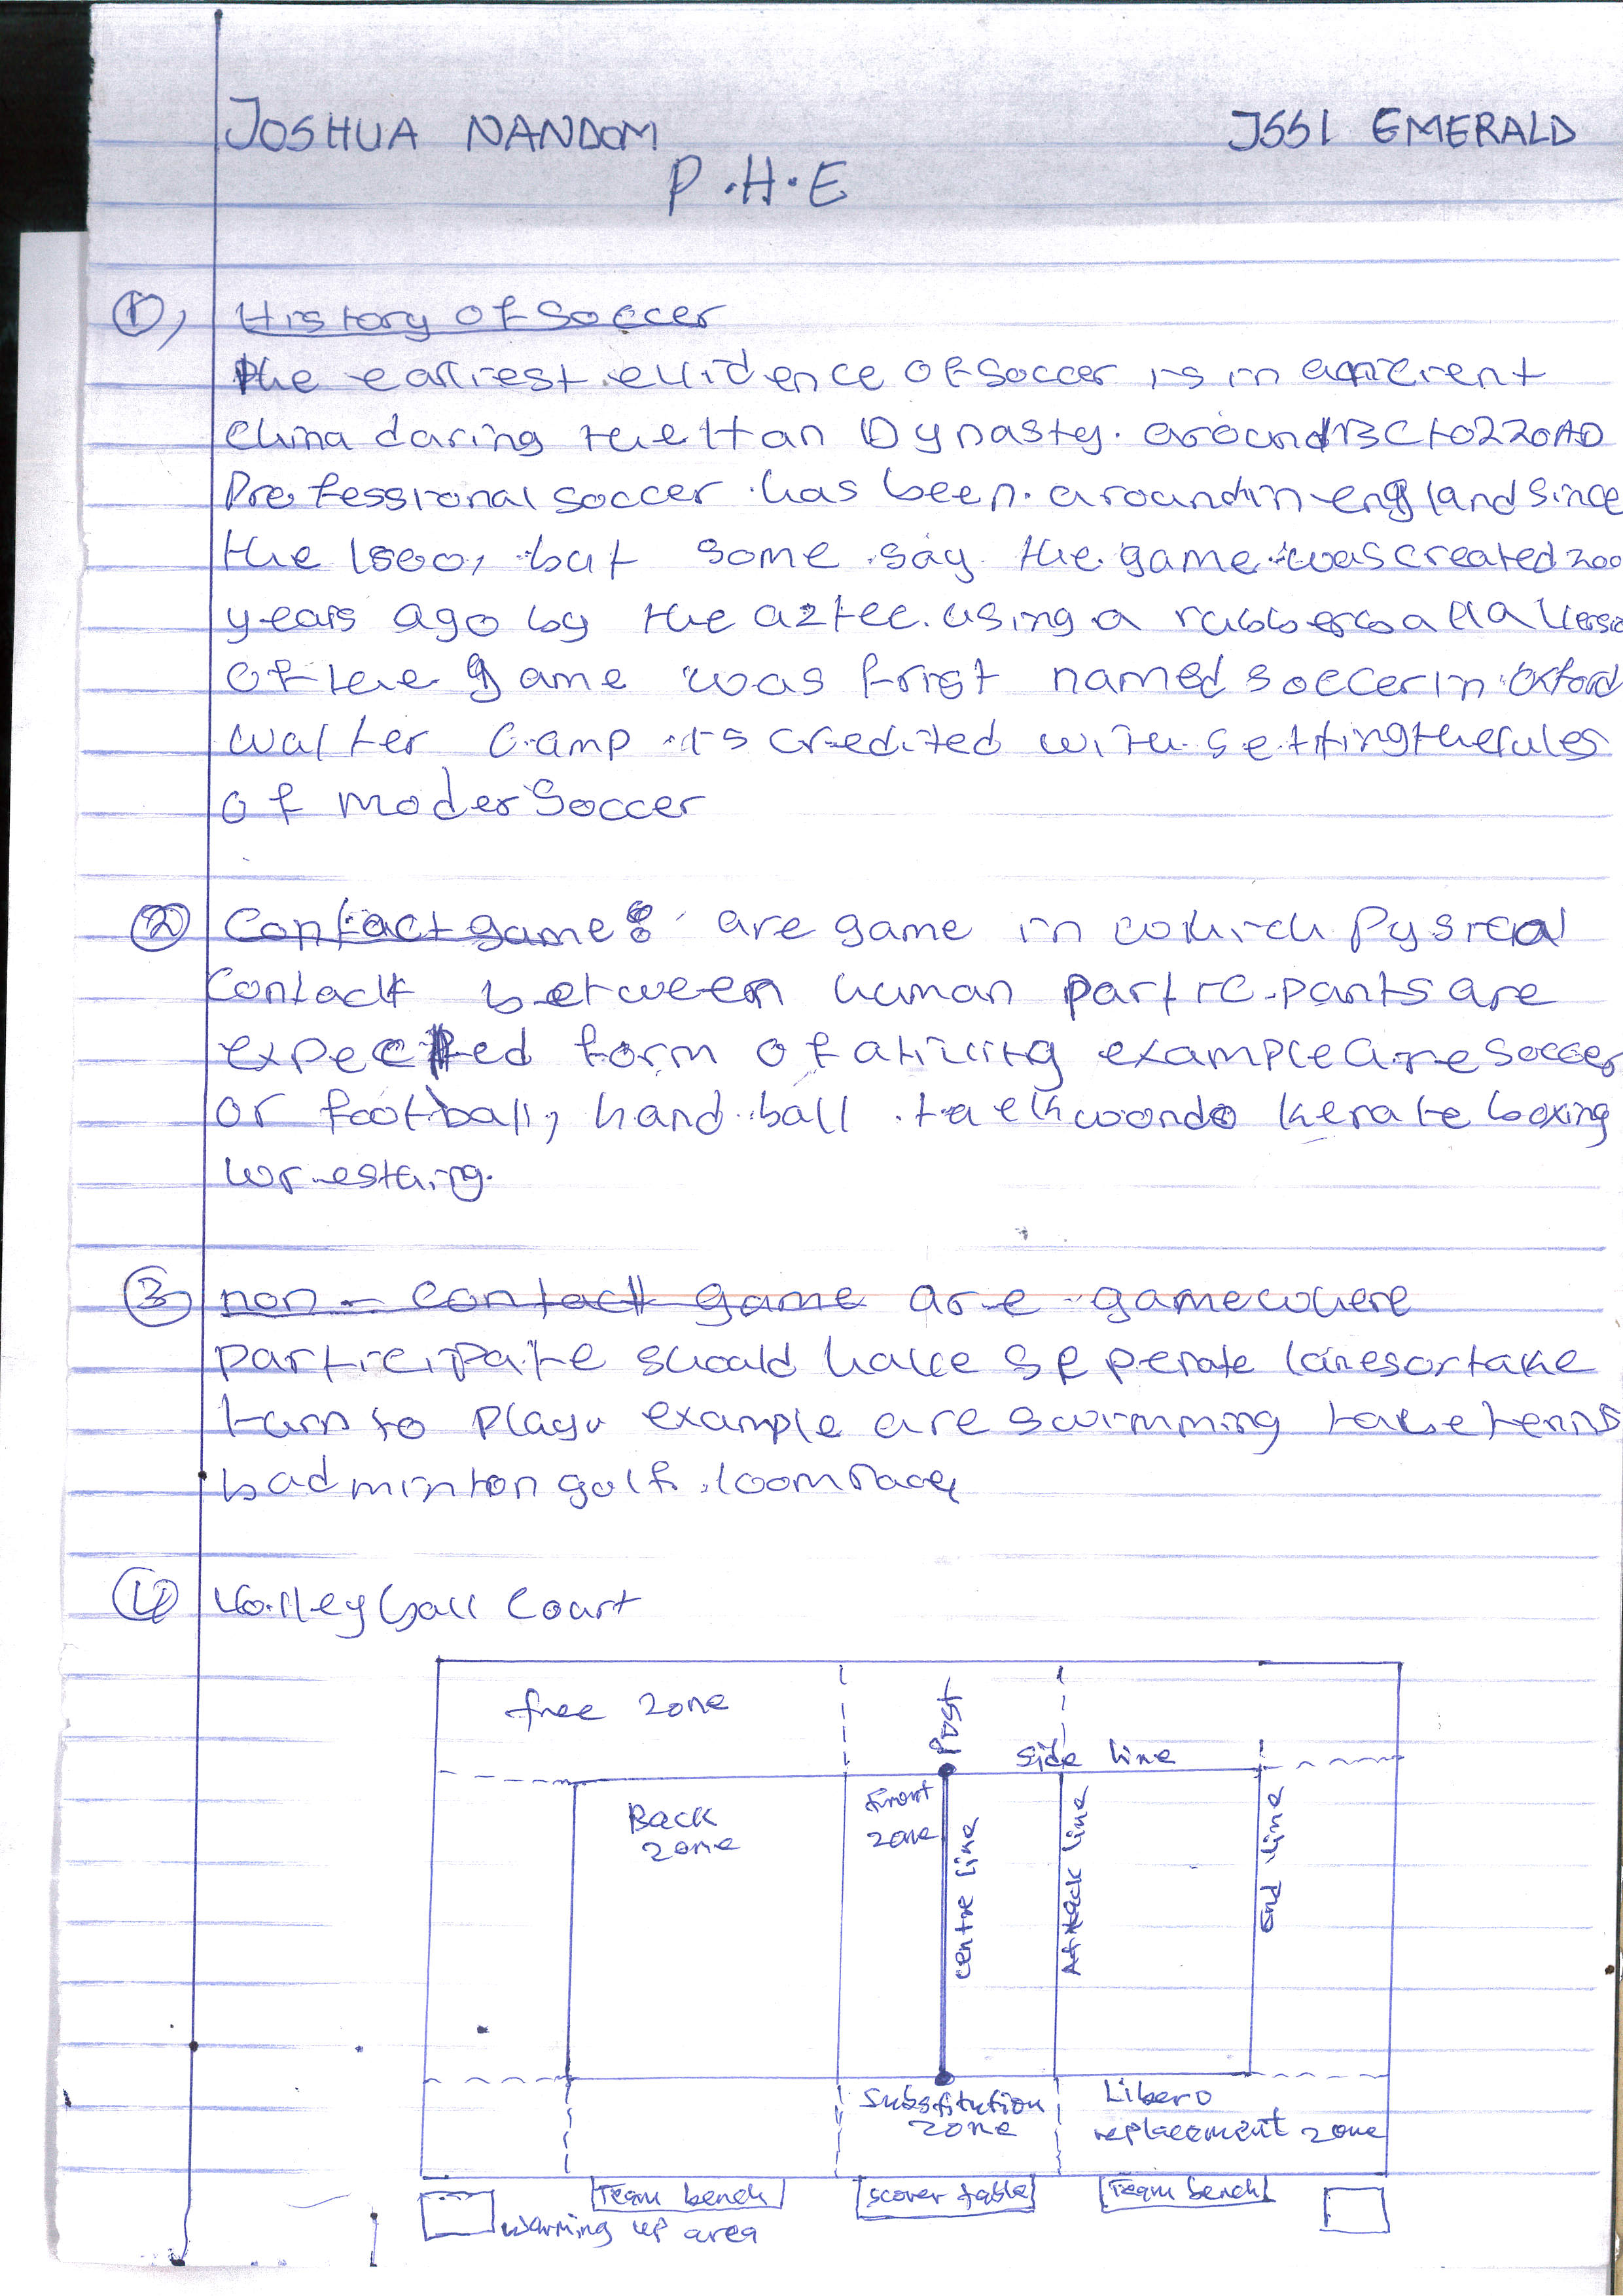 JOSHUA NANDOM JSS1 EMERALD
P.H.E
1, History of Soccer
the earliest evidence of soccer is in ancient
China daring the Han Dynasty. around BC to 220AD
Professional soccer has been around in england since
the 1800, but some say the game was created 200
years ago by the aztec. using a rubber ball A Versio
of the game was frist named soccer in Oxford
Walter Camp is credited with setting the rules
of moder Soccer
2 Contact game: are game in which Pysical
Contact between human partic-pants are
expected form of example are soccer
or football, hand ball taekwondo kerate boxing
wrestling.
3 non-contact game are game where
participate should have seperate lanes or take
turn to play example are swimming table tennis
badminton golf.
4 Volleyball Court
free zone
Post
Side line
Back zone
Front zone
centre line
Attack line
End line
Substitution zone
Libero replacement zone
Team bench
scorer table
Team bench
warming up area